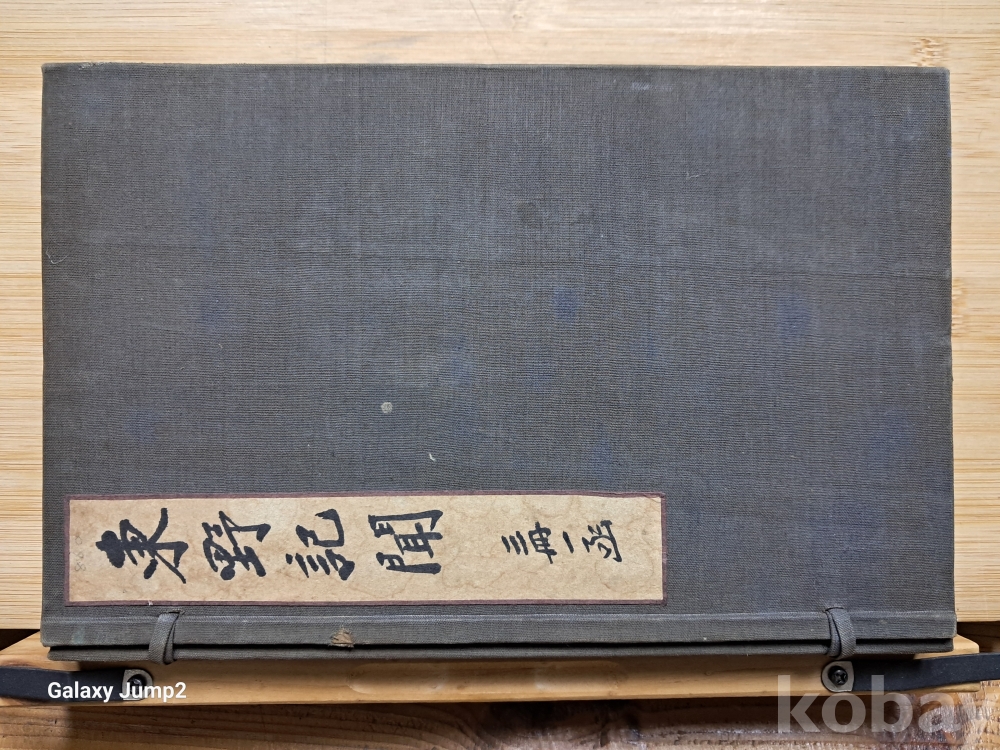 東野記聞 三冊一函
Galaxy Jump2
kobay